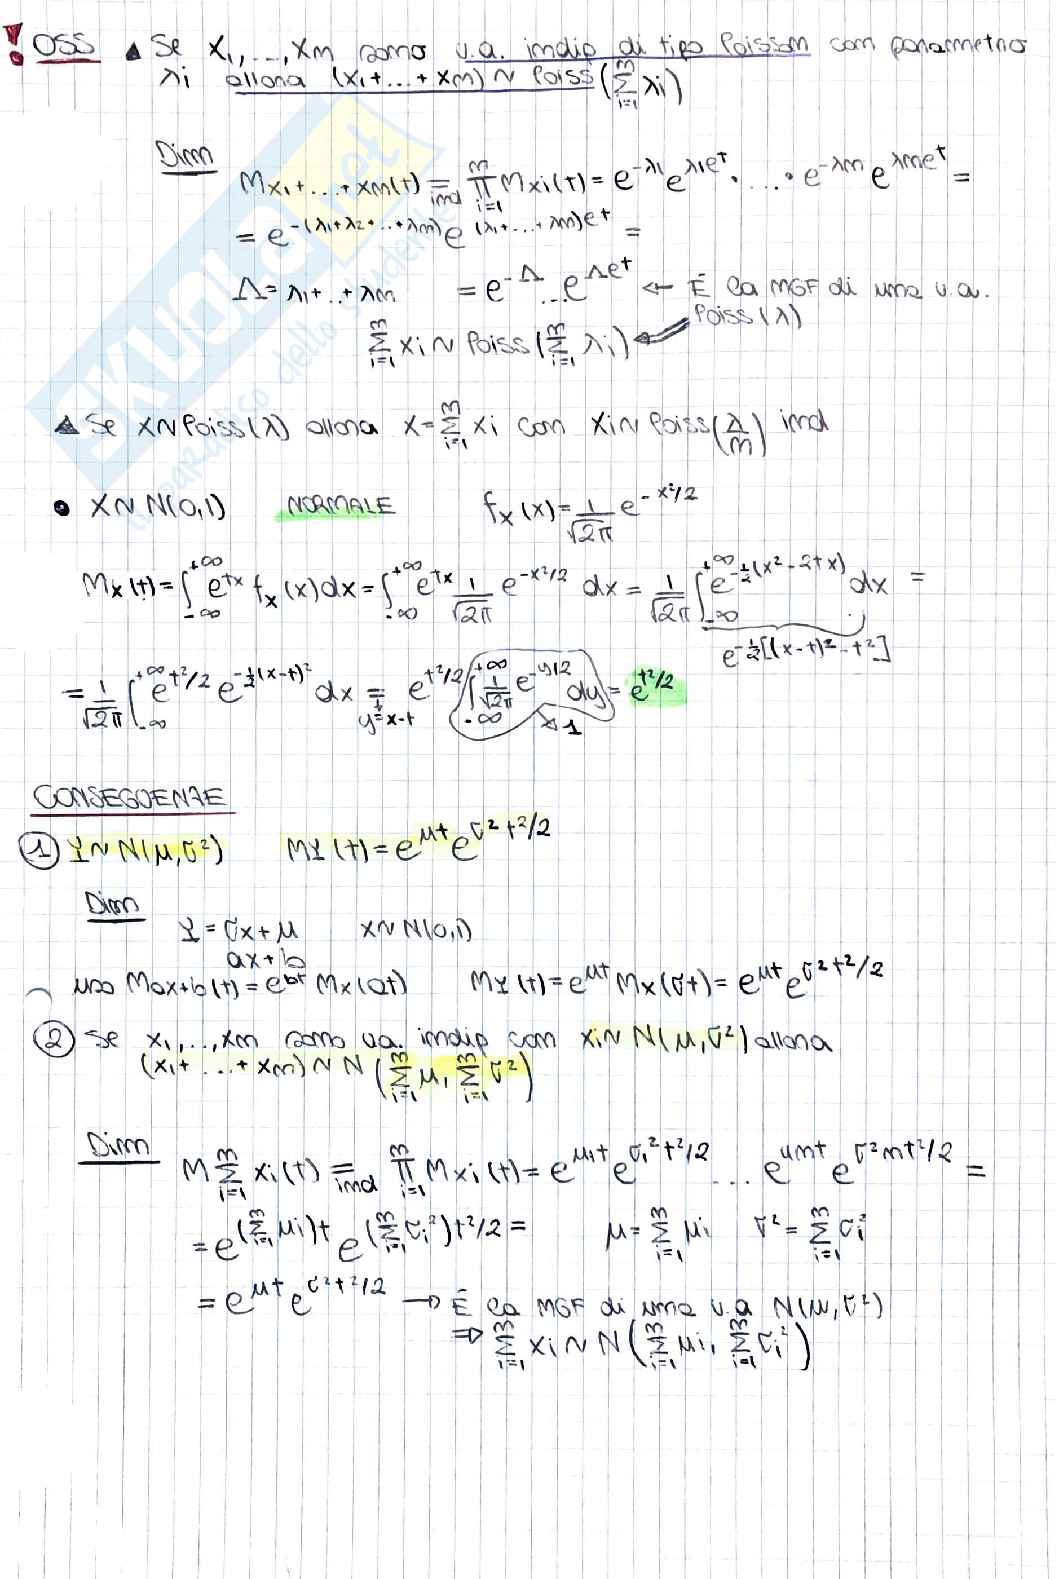 ! OSS ▲ Se X₁, ..., Xn sono v.a. indip di tipo Poisson con parametro
λi allora (X₁+...+Xn) ~ Poiss(∑ᵢ₌₁ⁿ λi)
Dim
M x₁+...+xn(t) =ind ∏ᵢ₌₁ⁿ Mxi(t) = e^(-λ₁) e^(λ₁e^t) · ... · e^(-λn) e^(λne^t) =
= e^(-(λ₁+λ₂+...+λn)) e^((λ₁+...+λn)e^t) =
Λ = λ₁+..+λn = e^(-Λ) ... e^(Λe^t) ← È la MGF di una v.a.
Poiss(λ)
∑ᵢ₌₁ⁿ Xi ~ Poiss(∑ᵢ₌₁ⁿ λi) ⇐
▲ Se X~Poiss(λ) allora X=∑ᵢ₌₁ⁿ Xi con Xi~Poiss(λ/n) ind
• X~N(0,1) NORMALE fx(x) = 1/√2π e^(-x²/2)
Mx(t) = ∫₋∞^+∞ e^(tx) fx(x)dx = ∫₋∞^+∞ e^(tx) 1/√2π e^(-x²/2) dx = 1/√2π ∫₋∞^+∞ e^(-½(x²-2tx)) dx =
e^(-½[(x-t)²-t²])
= 1/√2π ∫₋∞^+∞ e^(t²/2) e^(-½(x-t)²) dx = e^(t²/2) ∫₋∞^+∞ 1/√2π e^(-y²/2) dy = e^(t²/2)
y=x-t 1
CONSEGUENZE
① Y~N(μ,σ²) MY(t) = e^(μt) e^(σ²t²/2)
Dim
Y = σx+μ x~N(0,1)
ax+b
uso Max+b(t) = e^(bt) Mx(at) MY(t) = e^(μt) Mx(σt) = e^(μt) e^(σ²t²/2)
② Se x₁,..,xn sono v.a. indip con xi~N(μ,σ²) allora
(x₁+...+xn) ~ N(∑ᵢ₌₁ⁿ μ, ∑ᵢ₌₁ⁿ σ²)
Dim
M ∑ᵢ₌₁ⁿ xi(t) =ind ∏ᵢ₌₁ⁿ Mxi(t) = e^(μ₁t) e^(σ₁²t²/2) ... e^(μnt) e^(σ²nt²/2) =
= e^((∑ᵢ₌₁ⁿ μi)t) e^((∑ᵢ₌₁ⁿ σi²)t²/2) = μ=∑ᵢ₌₁ⁿ μi σ²=∑ᵢ₌₁ⁿ σi²
= e^(μt) e^(σ²t²/2) → È la MGF di una v.a N(μ,σ²)
⇒ ∑ᵢ₌₁ⁿ xi ~ N(∑ᵢ₌₁ⁿ μi, ∑ᵢ₌₁ⁿ σi²)
SKUOLA.net
il paradiso dello studente